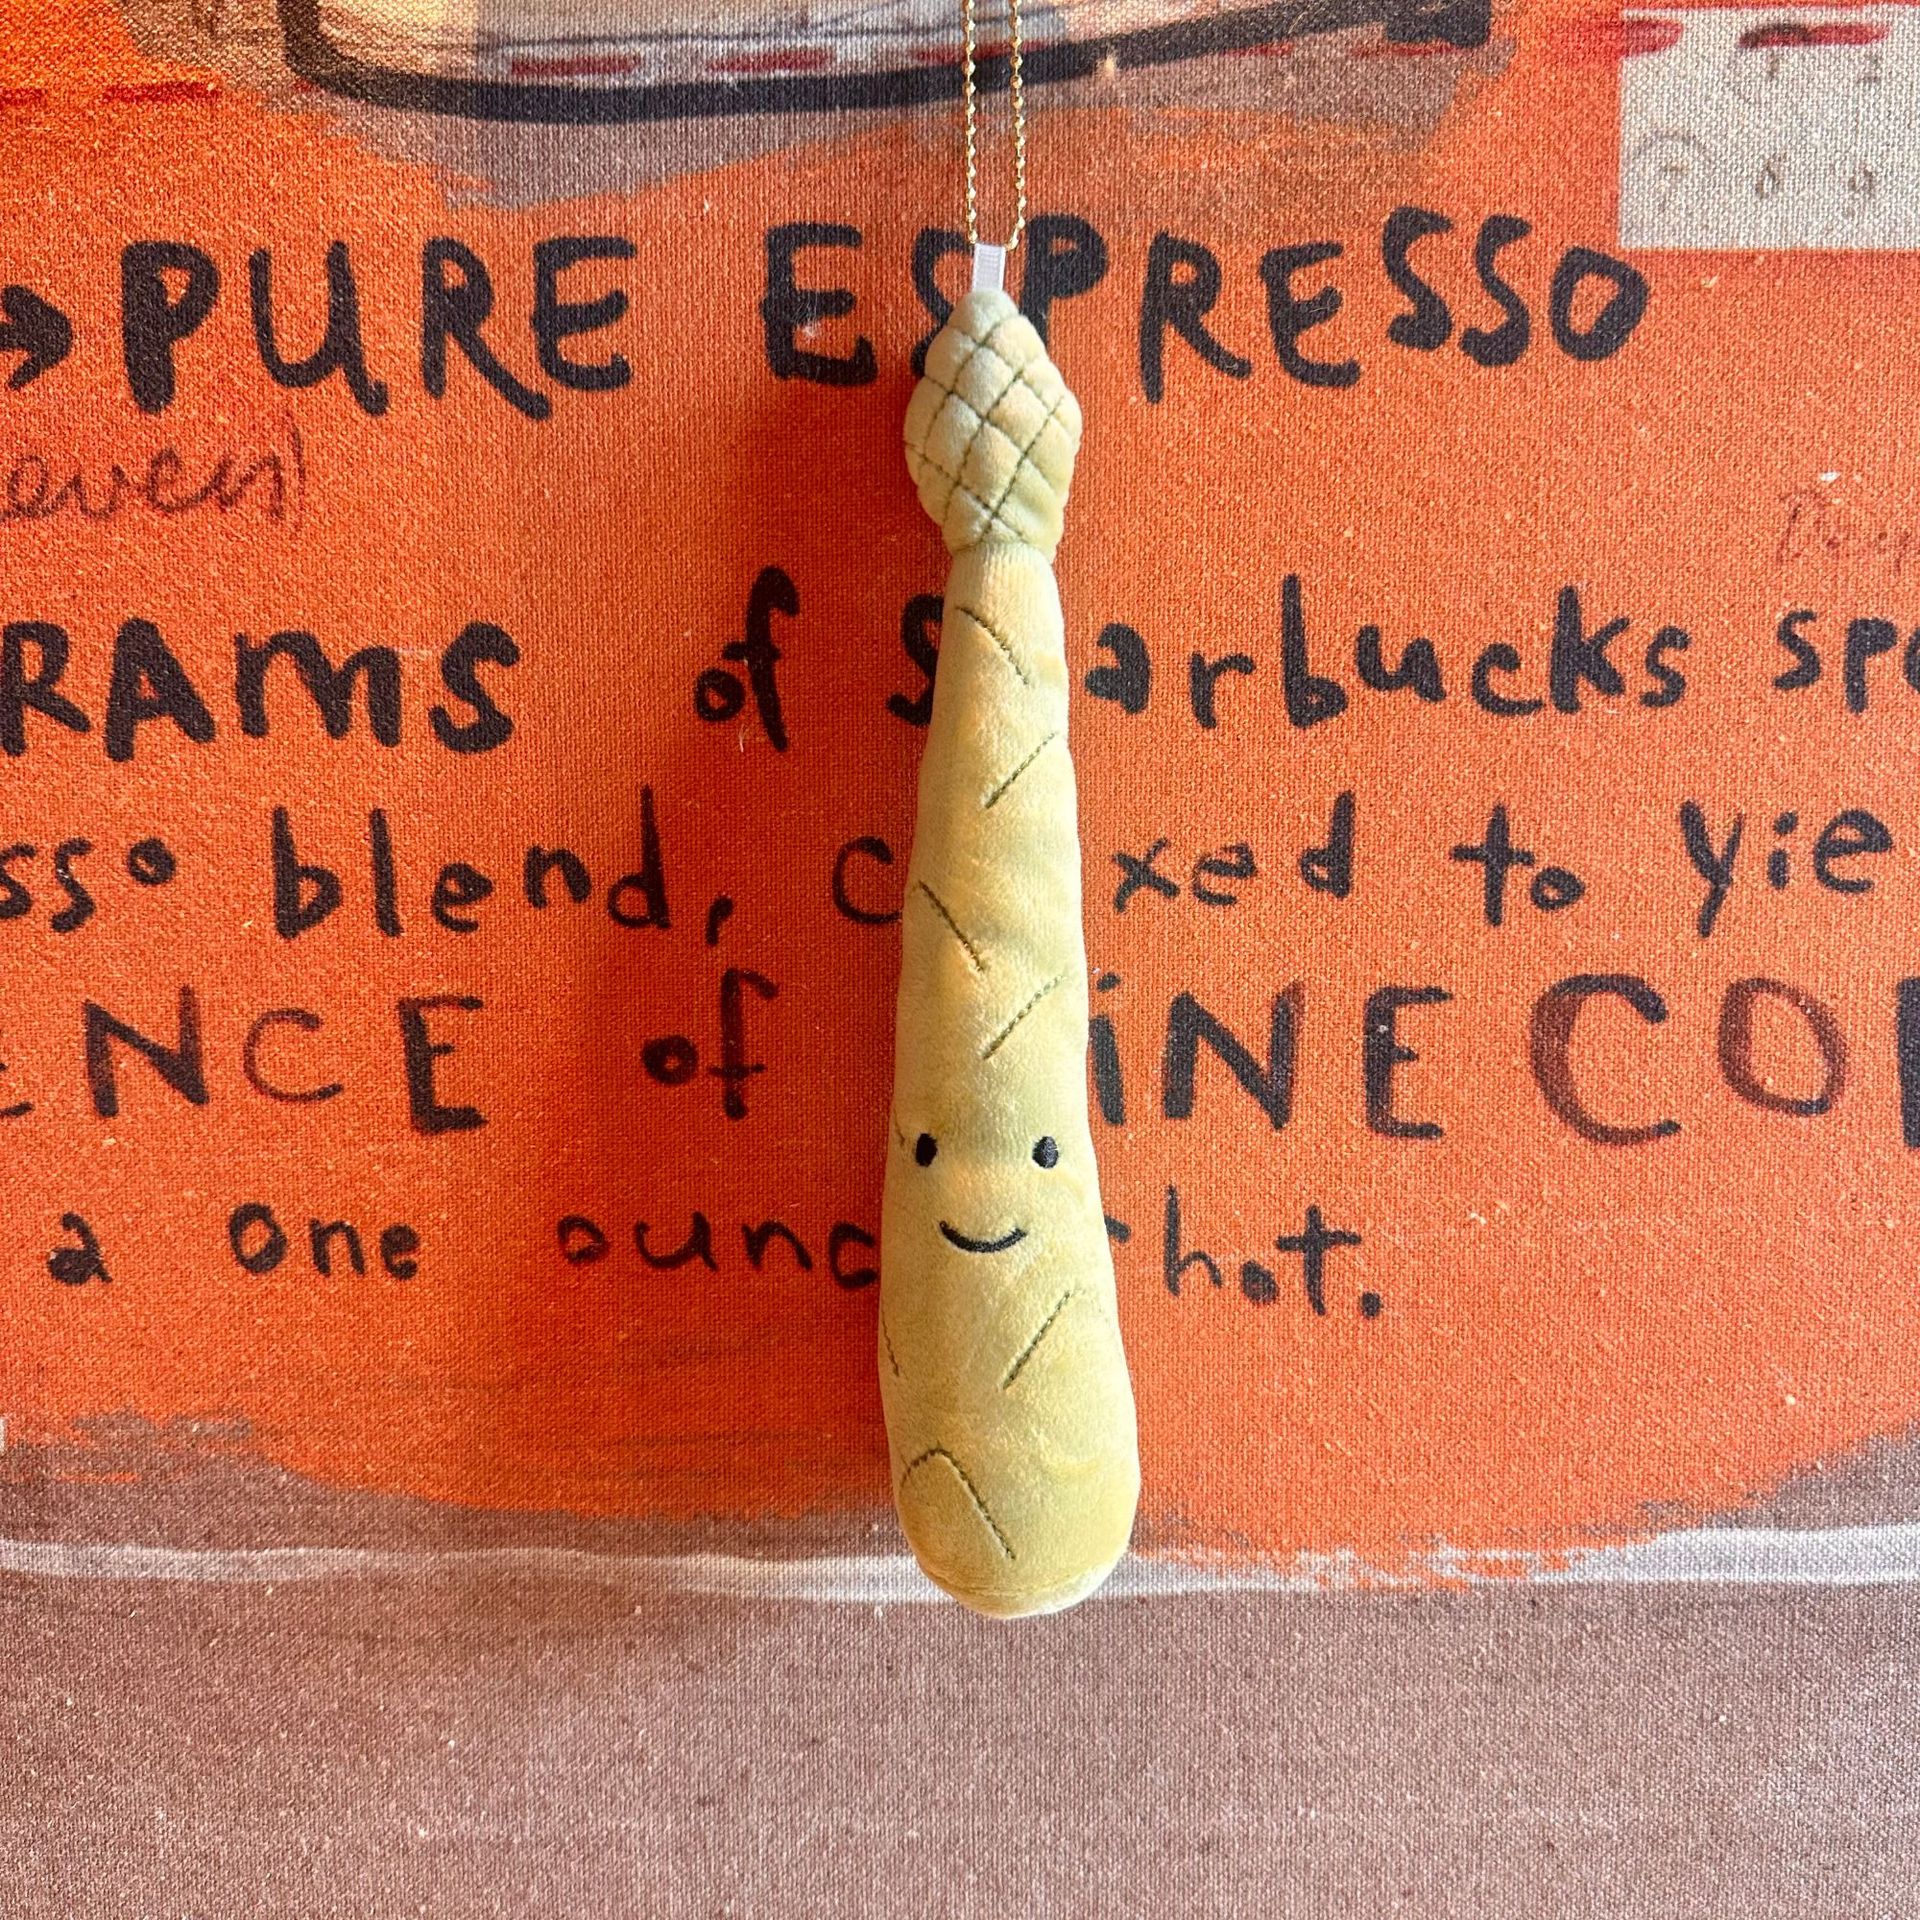 → PURE ESPRESSO
RAMS of Starbucks sp
sso blend, xed to yie
ENCE of INE CO
a one ounc hot.